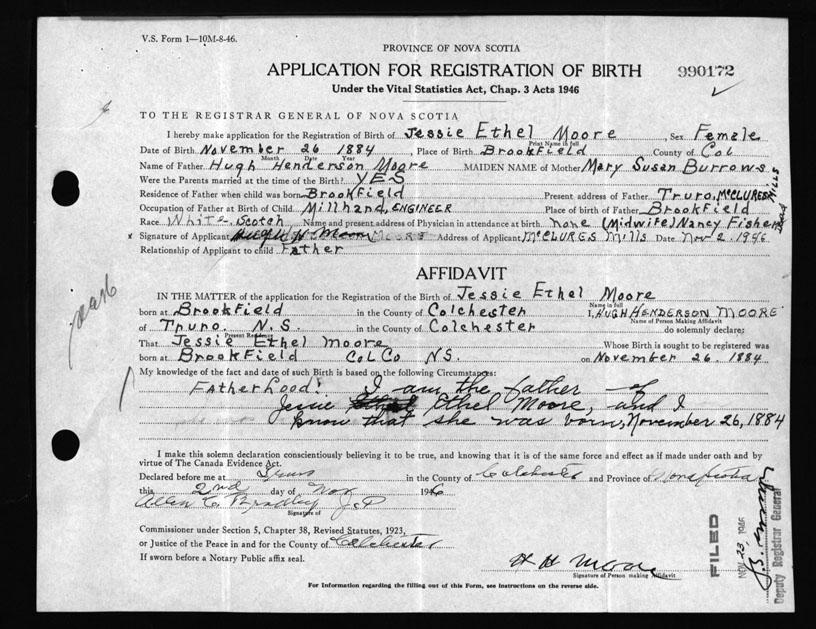 V.S. Form 1—10M-8-46.
PROVINCE OF NOVA SCOTIA
APPLICATION FOR REGISTRATION OF BIRTH
990172
Under the Vital Statistics Act, Chap. 3 Acts 1946
TO THE REGISTRAR GENERAL OF NOVA SCOTIA
I hereby make application for the Registration of Birth of Jessie Ethel Moore, Sex Female
Print Name in full
Date of Birth November 26 1884, Place of Birth Brookfield County of Col
Month Date Year
Name of Father Hugh Henderson Moore MAIDEN NAME of Mother Mary Susan Burrows
Were the Parents married at the time of the Birth? YES
Residence of Father when child was born Brookfield Present address of Father Truro, McCLURES MILLS
Occupation of Father at Birth of Child Millhand, ENGINEER Place of birth of Father Brookfield
Race White, Scotch Name and present address of Physician in attendance at birth none (Midwife) Nancy Fisher Dead
x Signature of Applicant Hugh H. Moore MOORE Address of Applicant McCLURES Mills Date Nov 2. 1946
Relationship of Applicant to child Father
AFFIDAVIT
IN THE MATTER of the application for the Registration of the Birth of Jessie Ethel Moore
Name in full
born at Brookfield in the County of Colchester I, HUGH HENDERSON MOORE
Name of Person Making Affidavit
of Truro. N.S. in the County of Colchester do solemnly declare:
Present Residence
That Jessie Ethel Moore Whose Birth is sought to be registered was
born at Brookfield Col Co N.S. on November 26. 1884
My knowledge of the fact and date of such Birth is based on the following Circumstances:
FATHERHOOD! I am the father of
Jessie Ethel Moore, and I
know that she was born, November 26, 1884
I make this solemn declaration conscientiously believing it to be true, and knowing that it is of the same force and effect as if made under oath and by
virtue of The Canada Evidence Act.
Declared before me at Truro in the County of Colchester and Province of Nova Scotia
this 2nd day of Nov 1946
Allen C. Bradley J.P.
Signature of
Commissioner under Section 5, Chapter 38, Revised Statutes, 1923,
or Justice of the Peace in and for the County of Colchester
If sworn before a Notary Public affix seal.
H H Moore
Signature of Person making Affidavit
For Information regarding the filling out of this Form, see instructions on the reverse side.
FILED
NOV 23 1946
Deputy Registrar General